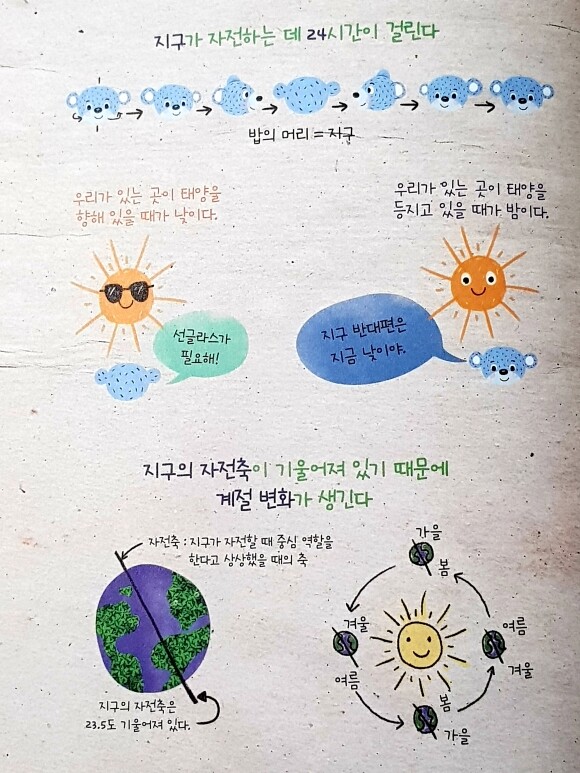 지구가 자전하는 데 24시간이 걸린다
밥의 머리 = 지구
우리가 있는 곳이 태양을
향해 있을 때가 낮이다.
우리가 있는 곳이 태양을
등지고 있을 때가 밤이다.
선글라스가
필요해!
지구 반대편은
지금 낮이야.
지구의 자전축이 기울어져 있기 때문에
계절 변화가 생긴다
자전축 : 지구가 자전할 때 중심 역할을
한다고 상상했을 때의 축
지구의 자전축은
23.5도 기울어져 있다.
가을
봄
겨울
여름
여름
겨울
봄
가을